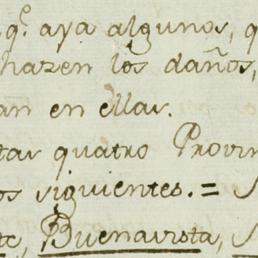 q.e aya algunos, q
hazen los daños,
an en ellas.
tas quatro Provin
os siguientes.=
te, Buenavista,